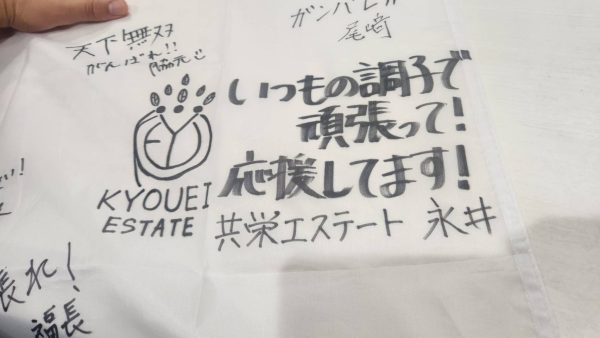 天下無双
がんばれ!!
脇元
ガンバレ!!
尾崎
いつもの調子で
頑張って!
応援してます!
KYOUEI
ESTATE
共栄エステート 永井
張れ!
福長